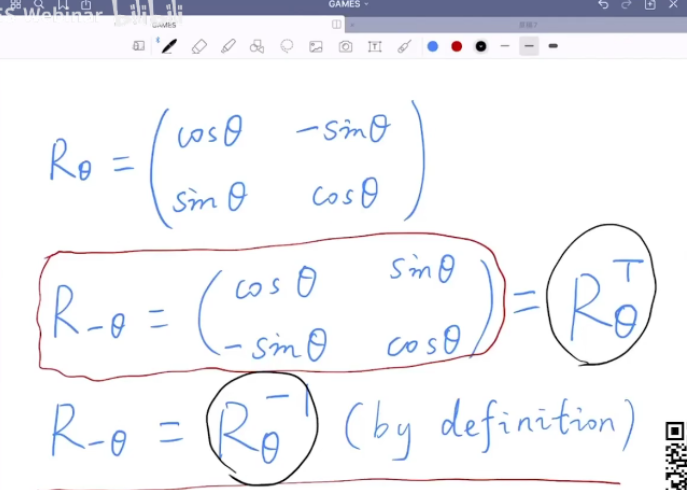 GAMES Webinar bilibili
GAMES
GAMES
R_θ = ( cosθ  -sinθ
sinθ  cosθ )
R_{-θ} = ( cosθ  sinθ
-sinθ  cosθ ) = R_θ^T
R_{-θ} = R_θ^{-1} (by definition)